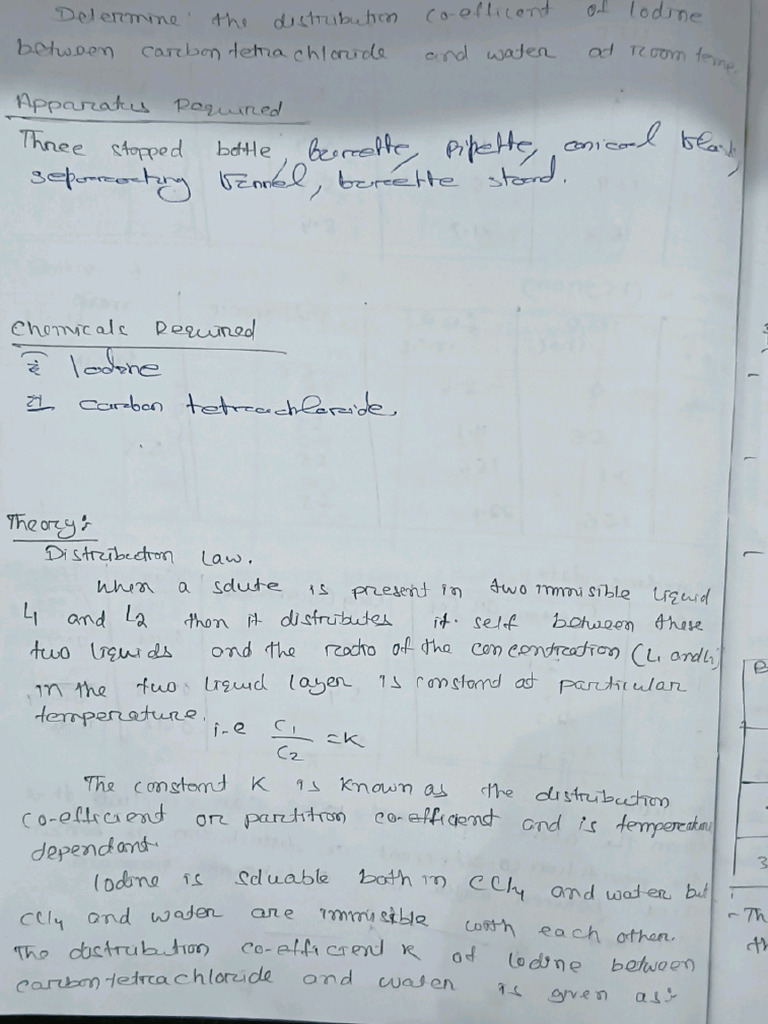 Determine the distribution co-efficent of Iodine
between carbon tetra chloride and water at room temp.
Apparatus Required
Three stopped bottle, burette, pipette, conical flask,
separating funnel, burette stand.
Chemicals Required
i Iodine
ii carbon tetrachloride.
Theory:
Distribution Law.
When a solute is present in two immisible liquid
L1 and L2 then it distributes it self between these
two liquids and the ratio of the concentration (L1 and L2)
in the two liquid layer is constant at particular
temperature.
i.e C1/C2 = K
The constant K is known as the distribution
co-efficient or partition co-efficient and is temperature
dependant.
Iodine is soluable both in CCl4 and water but
CCl4 and water are immisible with each other.
The distribution co-efficient K of Iodine between
carbon tetrachloride and water is given as:
3
- Th
th